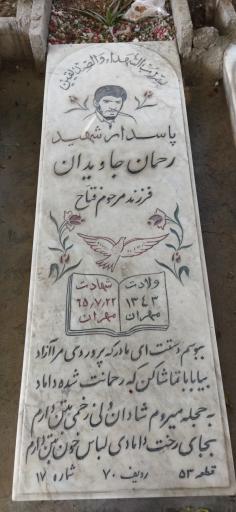 بسم رب الشهداء والصدیقین
پاسدار شهید
رحمان جاویدان
فرزند مرحوم فتاح
ولادت
۱۳۴۳
مهران
شهادت
۶۵/۷/۲۲
مهران
ببوسم دستت ای مادر که پروردی مرا آزاد
بیا بابا تماشا کن که رحمانت شده داماد
به حجله میروم شادان ولی زخمی بتن دارم
بجای رخت دامادی لباس خون بتن دارم
قطعه ۵۳ ردیف ۷۰ شماره ۱۷